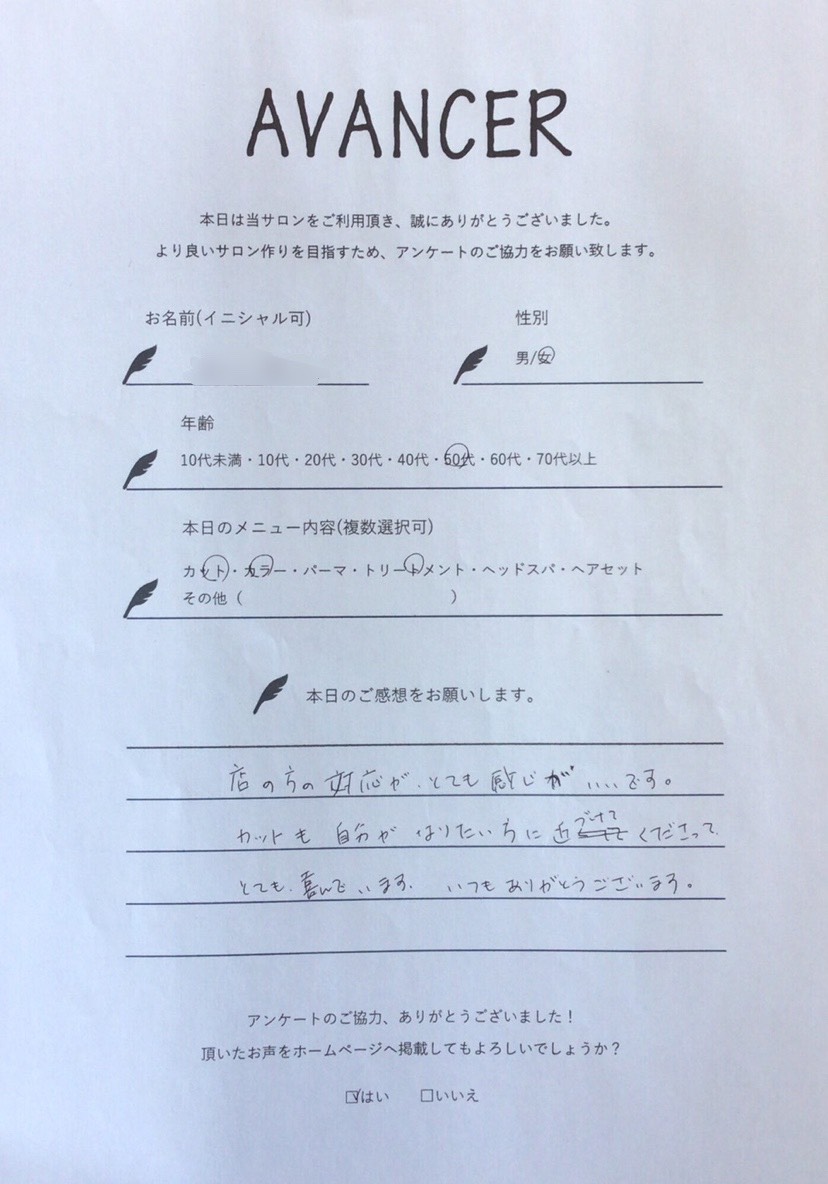 AVANCER
本日は当サロンをご利用頂き、誠にありがとうございました。
より良いサロン作りを目指すため、アンケートのご協力をお願い致します。
お名前(イニシャル可)
性別
男/女
年齢
10代未満・10代・20代・30代・40代・50代・60代・70代以上
本日のメニュー内容(複数選択可)
カット・カラー・パーマ・トリートメント・ヘッドスパ・ヘアセット
その他（ ）
本日のご感想をお願いします。
店の方の対応が、とても感じが いいです。
カットも 自分が なりたい方に近づけて くださって、
とても、喜んでいます。 いつもありがとうございます。
アンケートのご協力、ありがとうございました！
頂いたお声をホームページへ掲載してもよろしいでしょうか？
☑はい □いいえ